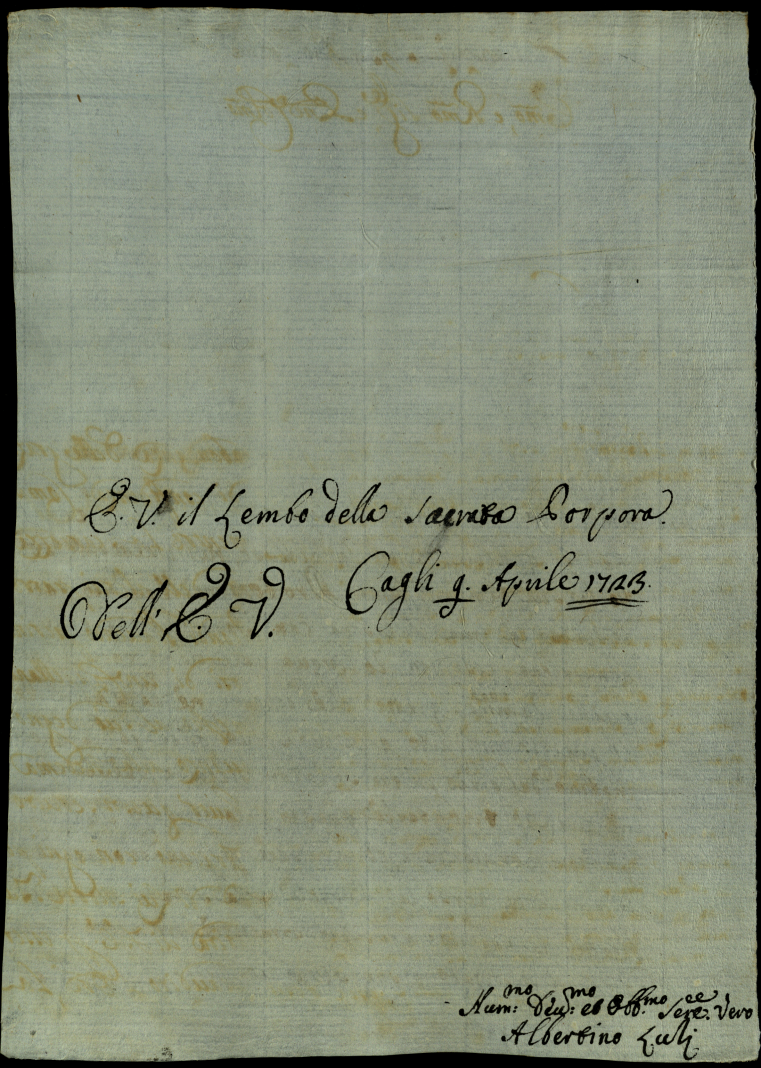 E. V. il Lembo della sacrata Porpora.
Cagli 9. Aprile 1723.
Dell' E. V.
Hum:mo Deu:mo et Obb:mo Sere. Vero
Albertino Luli